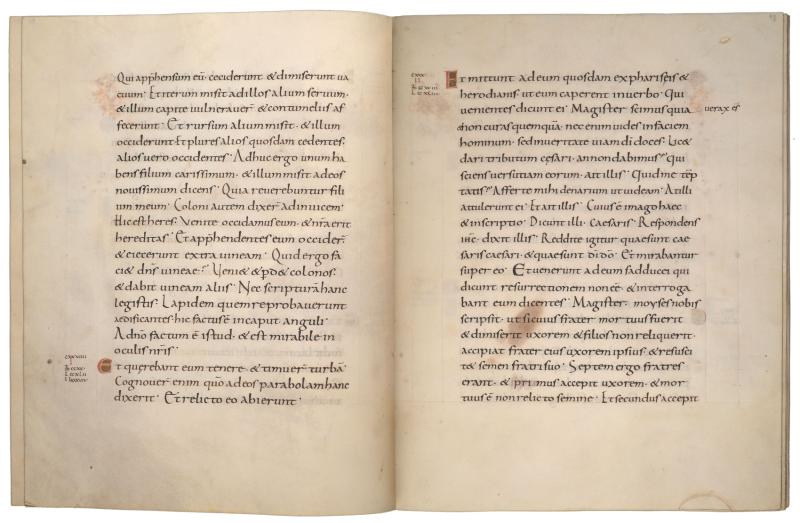 Qui apphensum eū ceciderunt & dimiserunt va
cuum· Et iterum misit ad illos alium servum·
& illum capite vulneraver̄ & contumeliis af
fecerunt· Et rursum alium misit· & illum
occiderunt· Et plures alios quosdam cedentes·
alios vero occidentes· Adhuc ergo unum ha
bens filium carissimum· & illum misit ad eos
novissimum dicens· Quia reverebuntur fili
um meum· Coloni autem dixer̄ ad invicem·
Hic est heres· Venite occidamus eum· & nr̄a erit
hereditas· Et apphendentes eum occider̄
& eiecerunt extra vineam· Quid ergo fa
ci& dn̄s vineae· Veni& & pd& colonos·
& dabit vineam aliis· Nec scripturā hanc
legistis· Lapidem quem reprobaverunt
aedificantes· hic factus ē in caput anguli·
A dn̄o factum ē istud· & est mirabile in
oculis nr̄is·
Et querebant eum tenere· & timuer̄ turbā·
Cognouer̄ enim qūo ad eos parabolam hanc
dixerit· Et relicto eo abierunt·
Et mittunt ad eum quosdam ex phariseis &
herodianis ut eum caperent in verbo· Qui
venientes dicunt ei· Magister scimus quia verax es
& non curas quemquā· nec enim uides in faciem
hominum· sed in veritate viam di doces· Lic&
dari tributum cesari· an non dabimus· Qui
sciens versutiam eorum· ait illis· Quid me tēp
tatis· Afferte mihi denarium ut videam· At illi
attulerunt ei· Et ait illis· Cuius ē imago haec
& inscriptio· Dicunt illi· Caesaris· Respondens
ih̄c· dixit illis· Reddite igitur quae sunt cae
saris caesari· & quae sunt dī dō· Et mirabantur
super eo· Et venerunt ad eum sadducei qui
dicunt resurrectionem non ēē· & interroga
bant eum dicentes· Magister· moyses nobis
scripsit· ut si cuius frater mortuus fuerit
& dimiserit uxorem & filios non reliquerit·
accipiat frater eius uxorem ipsius & resusci
t& semen fratri suo· Septem ergo fratres
erant· & primus accepit uxorem· & mor
tuus ē non relicto semine· Et secundus accepit